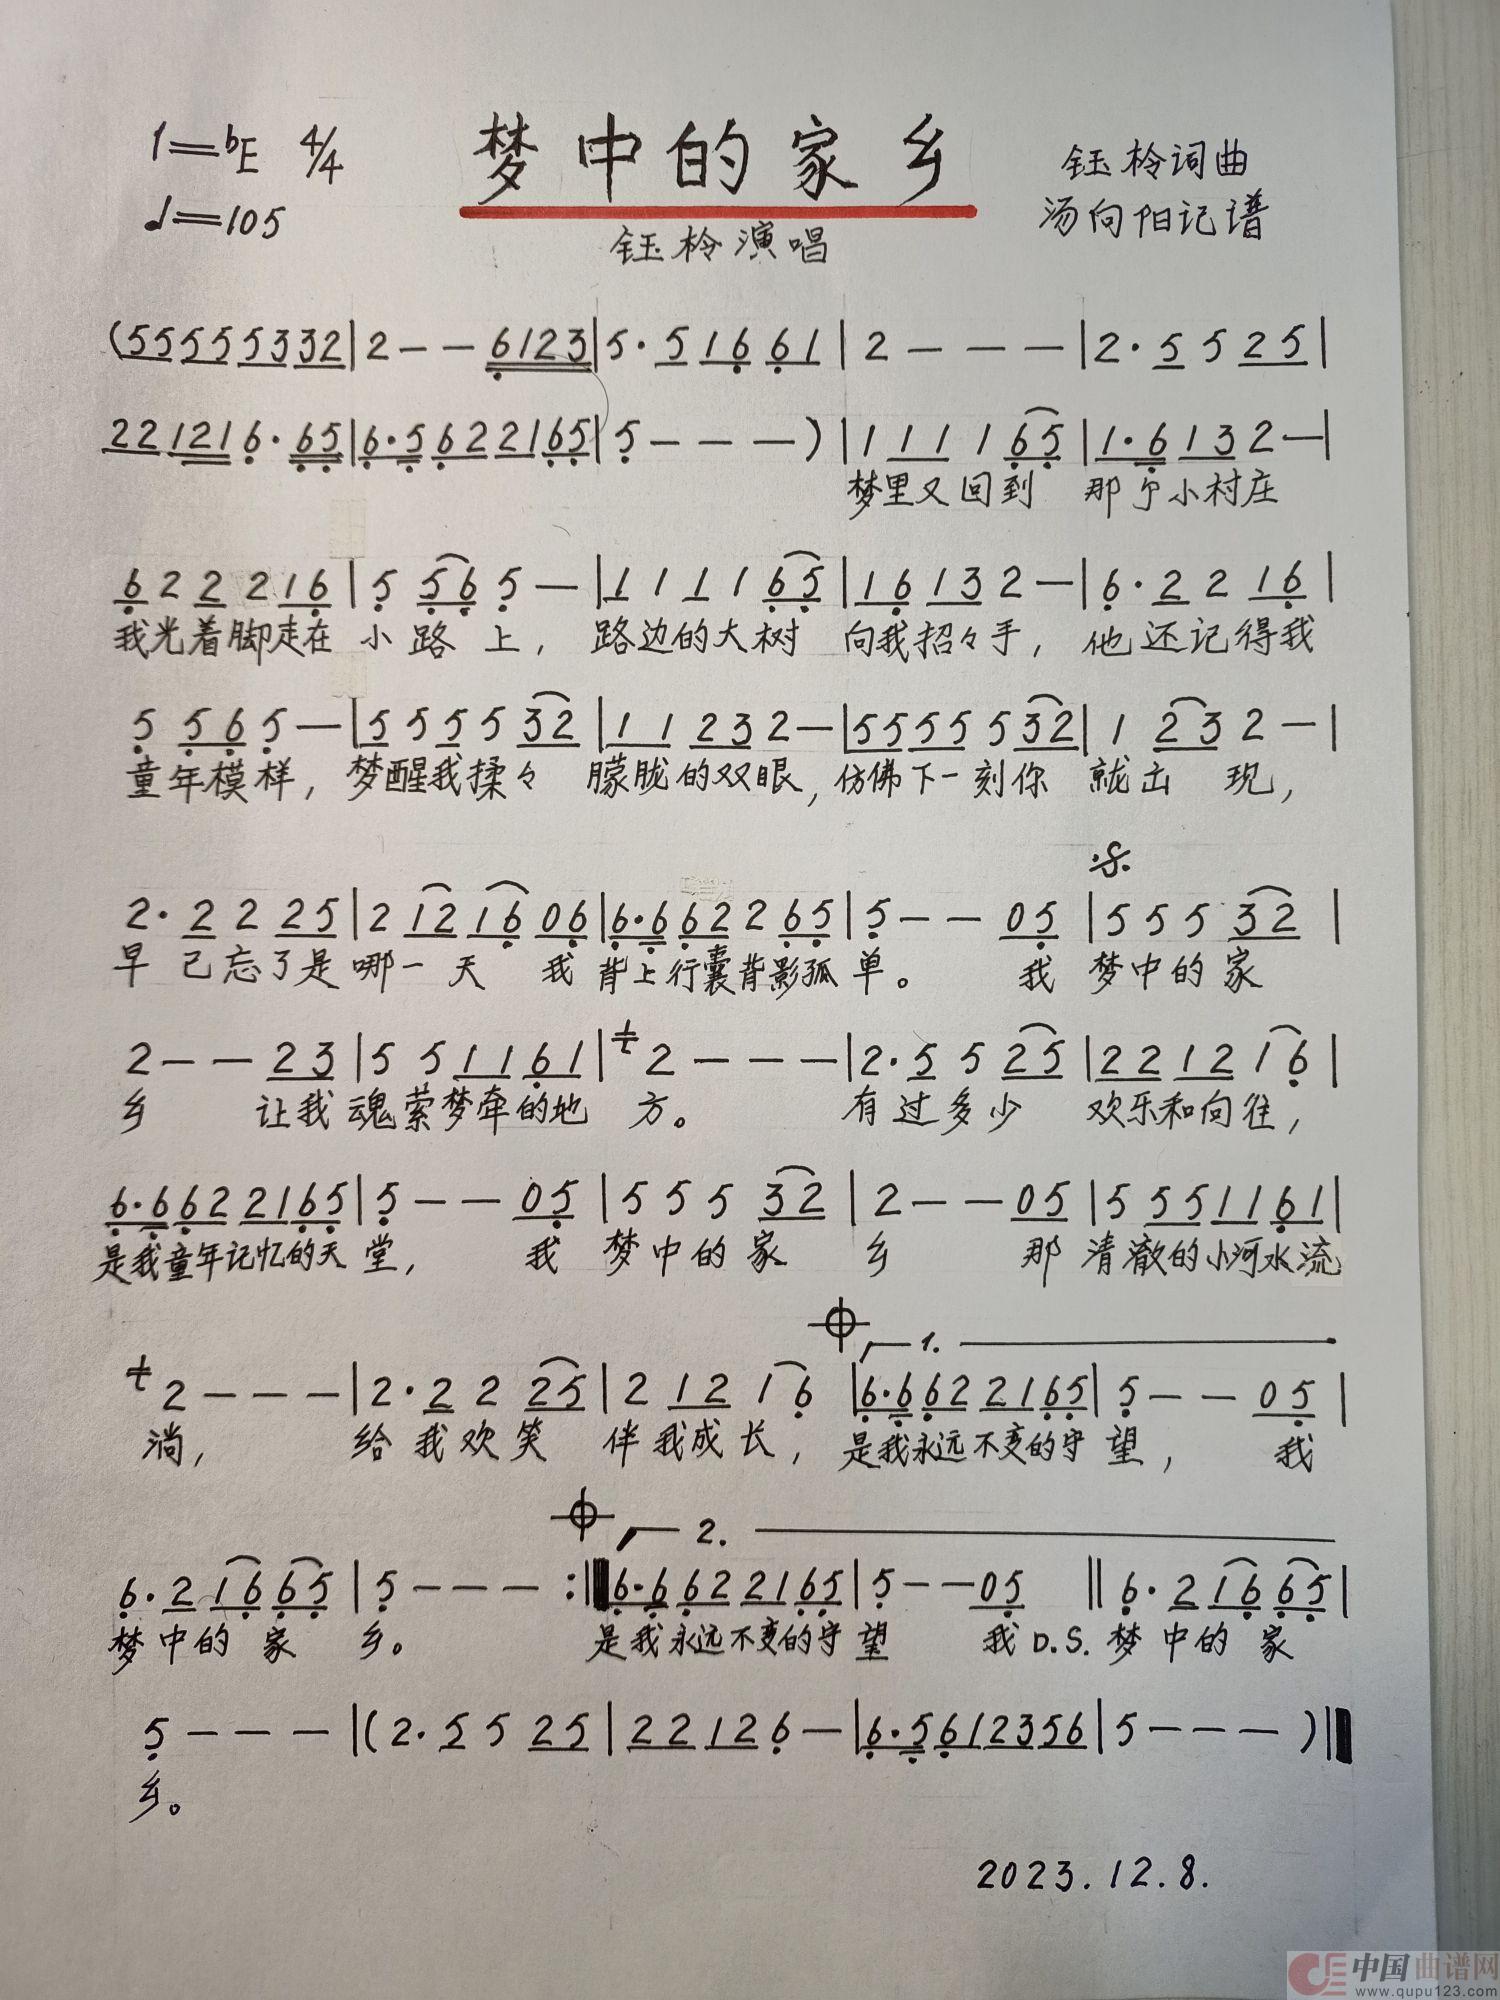 1=bE 4/4 梦中的家乡 钰柃词曲
♩=105 钰柃演唱 汤向阳记谱
(5 5 5 5 5 3 3 2 | 2 - - 6 1 2 3 | 5 · 5 1 6 6 1 | 2 - - - | 2 · 5 5 2 5 |
2 2 1 2 1 6 · 6 5 | 6 · 5 6 2 2 1 6 5 | 5 - - - ) | 1 1 1 1 6 5 | 1 · 6 1 3 2 - |
梦里又回到 那个小村庄
6 2 2 2 1 6 | 5 5 6 5 - | 1 1 1 1 6 5 | 1 6 1 3 2 - | 6 · 2 2 1 6 |
我光着脚走在 小路上, 路边的大树 向我招々手, 他还记得我
5 5 6 5 - | 5 5 5 5 3 2 | 1 1 2 3 2 - | 5 5 5 5 5 3 2 | 1 2 3 2 - |
童年模样, 梦醒我揉々 朦胧的双眼, 仿佛下一刻你 就出 现,
2 · 2 2 2 5 | 2 1 2 1 6 0 6 | 6 · 6 6 2 2 6 5 | 5 - - 0 5 | 5 5 5 3 2 |
早已忘了是 哪一天 我 背上行囊背影孤 单。 我 梦中的家
2 - - 2 3 | 5 5 1 1 6 1 | 2 - - - | 2 · 5 5 2 5 | 2 2 1 2 1 6 |
乡 让我 魂萦梦牵的地 方。 有过多少 欢乐和向往,
6 · 6 6 2 2 1 6 5 | 5 - - 0 5 | 5 5 5 3 2 | 2 - - 0 5 | 5 5 5 1 1 6 1 |
是我童年记忆的天 堂, 我 梦中的家 乡 那 清澈的小河水流
1.
2 - - - | 2 · 2 2 2 5 | 2 1 2 1 6 | 6 · 6 6 2 2 1 6 5 | 5 - - 0 5 |
淌, 给我欢笑 伴我成长, 是我永远不变的守 望, 我
2.
6 · 2 1 6 6 5 | 5 - - - :‖ 6 · 6 6 2 2 1 6 5 | 5 - - 0 5 ‖ 6 · 2 1 6 6 5 |
梦中的家 乡。 是我永远不变的守 望 我 D.S. 梦中的家
5 - - - | (2 · 5 5 2 5 | 2 2 1 2 6 - | 6 · 5 6 1 2 3 5 6 | 5 - - - )‖
乡。
2023.12.8.
中国曲谱网
www.qupu123.com